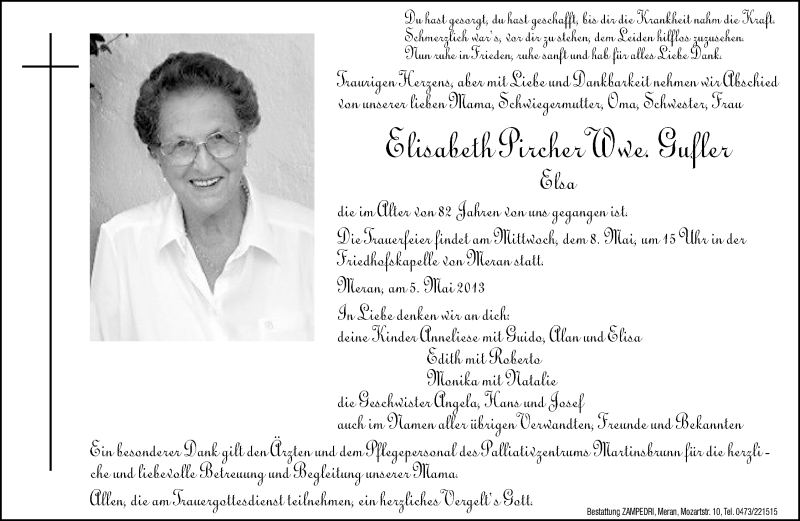 Du hast gesorgt, du hast geschafft, bis dir die Krankheit nahm die Kraft.
Schmerzlich war's, vor dir zu stehen, dem Leiden hilflos zuzusehen.
Nun ruhe in Frieden, ruhe sanft und hab für alles Liebe Dank.
Traurigen Herzens, aber mit Liebe und Dankbarkeit nehmen wir Abschied
von unserer lieben Mama, Schwiegermutter, Oma, Schwester, Frau
Elisabeth Pircher Wwe. Gufler
Elsa
die im Alter von 82 Jahren von uns gegangen ist.
Die Trauerfeier findet am Mittwoch, dem 8. Mai, um 15 Uhr in der
Friedhofskapelle von Meran statt.
Meran, am 5. Mai 2013
In Liebe denken wir an dich:
deine Kinder Anneliese mit Guido, Alan und Elisa
Edith mit Roberto
Monika mit Natalie
die Geschwister Angela, Hans und Josef
auch im Namen aller übrigen Verwandten, Freunde und Bekannten
Ein besonderer Dank gilt den Ärzten und dem Pflegepersonal des Palliativzentrums Martinsbrunn für die herzli-
che und liebevolle Betreuung und Begleitung unserer Mama.
Allen, die am Trauergottesdienst teilnehmen, ein herzliches Vergelt's Gott.
Bestattung ZAMPEDRI, Meran, Mozartstr. 10, Tel. 0473/221515